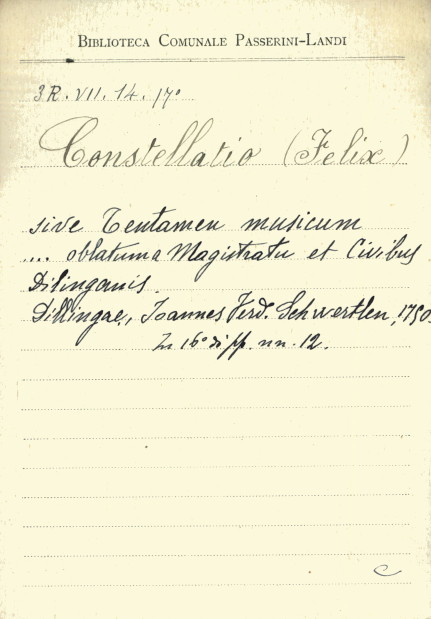 BIBLIOTECA COMUNALE PASSERINI-LANDI
3R. VII. 14. 17°
Constellatio (Felix)
sive Tentamen musicum
.... oblatuma Magistratu et Civibus
Dilinganis.
Dillingae, Joannes Ferd. Schwertlen, 1750.
In 16° di pp. nn. 12.
C